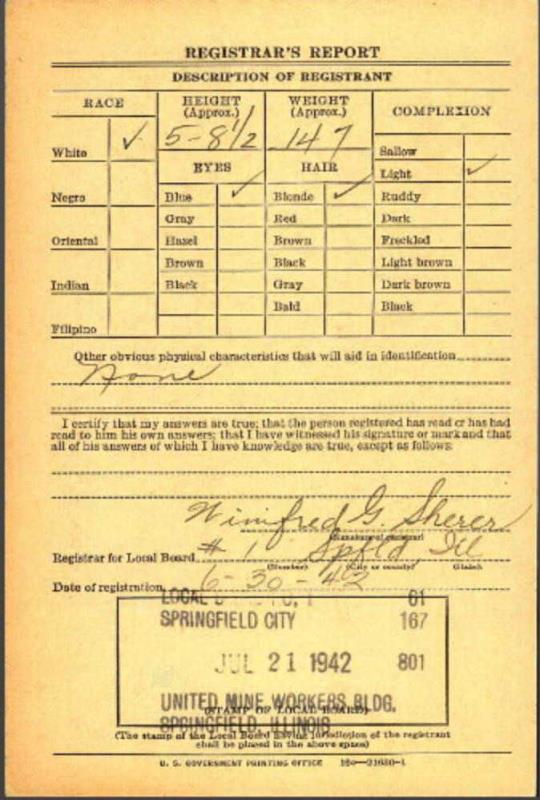 REGISTRAR'S REPORT
DESCRIPTION OF REGISTRANT
RACE HEIGHT (Approx.) WEIGHT (Approx.) COMPLEXION
5-8 1/2 147
White ✓
Sallow
EYES HAIR Light ✓
Negro Blue ✓ Blonde ✓ Ruddy
Gray Red Dark
Oriental Hazel Brown Freckled
Brown Black Light brown
Indian Black Gray Dark brown
Bald Black
Filipino
Other obvious physical characteristics that will aid in identification
None
I certify that my answers are true; that the person registered has read or has had
read to him his own answers; that I have witnessed his signature or mark and that
all of his answers of which I have knowledge are true, except as follows:
Winifred G. Sherer
(Signature of registrar)
Registrar for Local Board # 1 Spfld, Ill
(Number) (City or county) (State)
Date of registration 6-30-42
LOCAL 1 61
SPRINGFIELD CITY 167
JUL 21 1942 801
UNITED MINE WORKERS BLDG.
(STAMP OF LOCAL BOARD)
SPRINGFIELD, ILLINOIS
(The stamp of the Local Board having jurisdiction of the registrant
shall be placed in the above space)
U. S. GOVERNMENT PRINTING OFFICE 16—21630-1